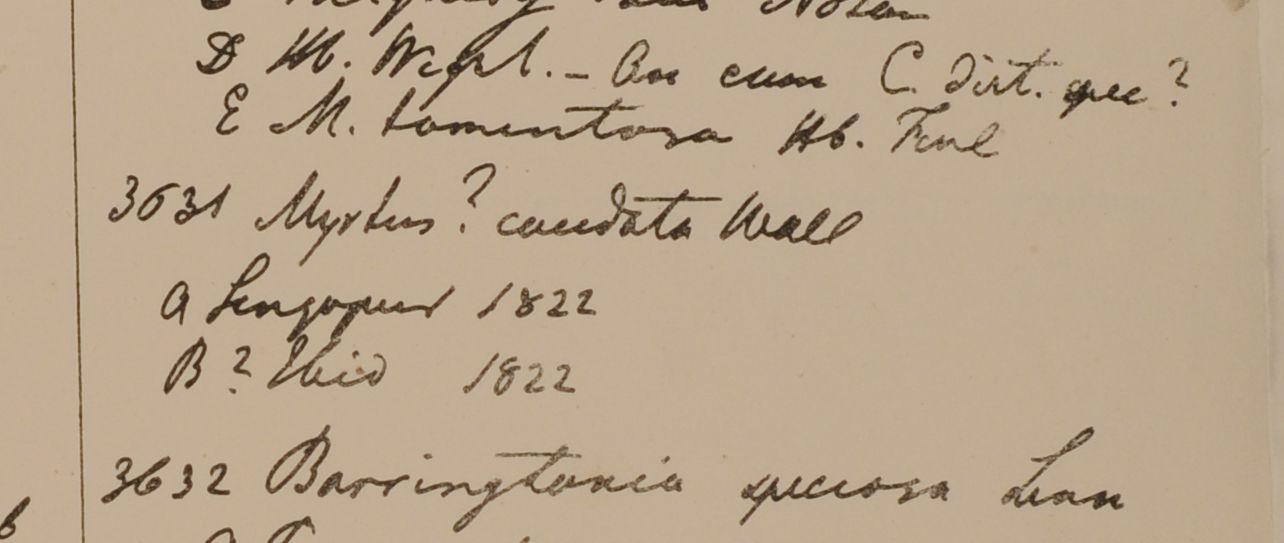 D Hb. Wight. - An cum C. dist. spec?
E M. tomentosa Hb. Finl
3631 Myrtus? caudata Wall
a Singapur 1822
B? Ibid 1822
3632 Barringtonia speciosa Linn